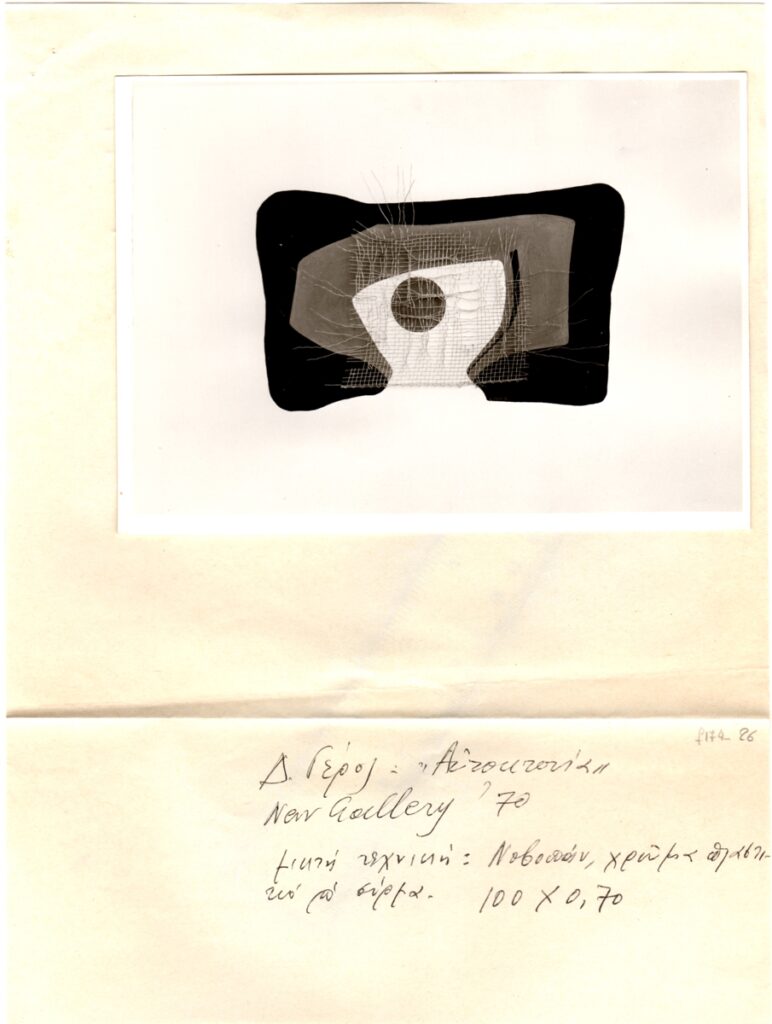 Δ. Γέρος : "Αὐτοκτονία"
New Gallery '70
μικτή τεχνική : Νοβοπάν, χρῶμα πλαστι-
κό σύρμα. 100 X 0,70